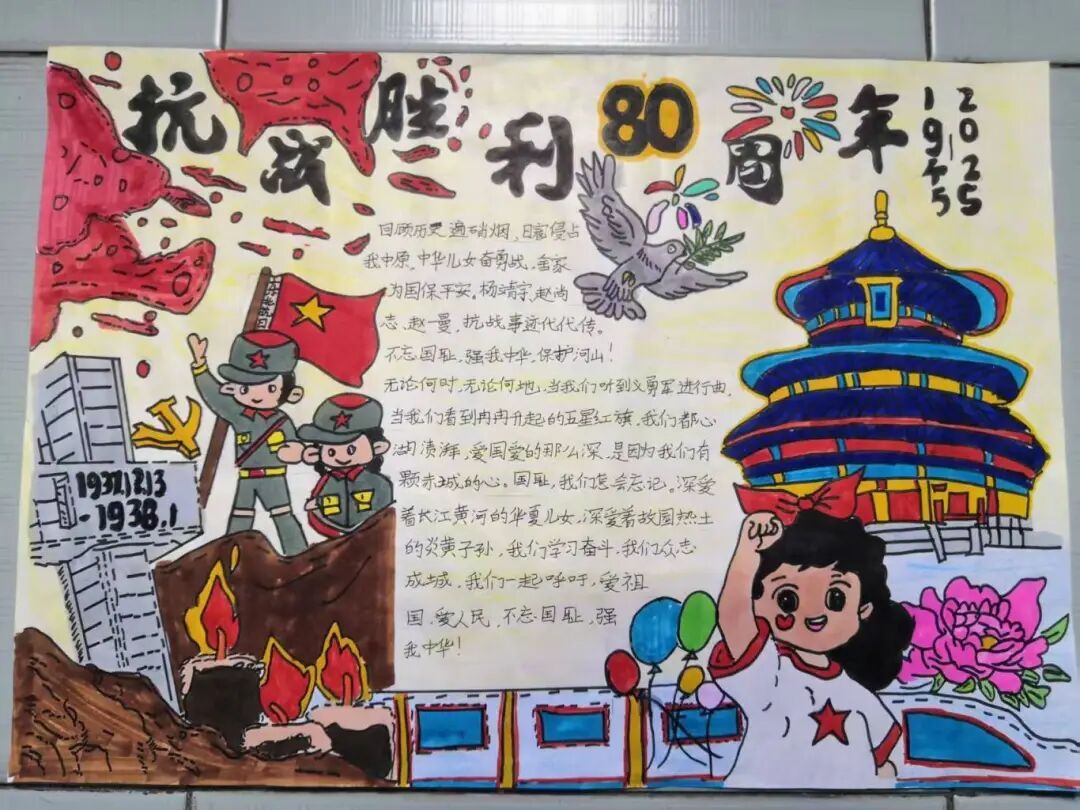 抗战胜利80周年
1945
2025
回顾历史遍硝烟,日寇侵占
我中原。中华儿女奋勇战,舍家
为国保平安。杨靖宇,赵尚
志,赵一曼,抗战事迹代代传。
不忘国耻,强我中华,保护河山!
无论何时,无论何地,当我们听到义勇军进行曲,
当我们看到冉冉升起的五星红旗,我们都心
潮澎湃,爱国爱的那么深,是因为我们有
颗赤城的心。国耻,我们怎会忘记。深爱
着长江黄河的华夏儿女,深爱着故园热土
的炎黄子孙,我们学习奋斗,我们众志
成城,我们一起呼吁,爱祖
国,爱人民,不忘国耻,强
我中华!
1937.12.13
-1938.1